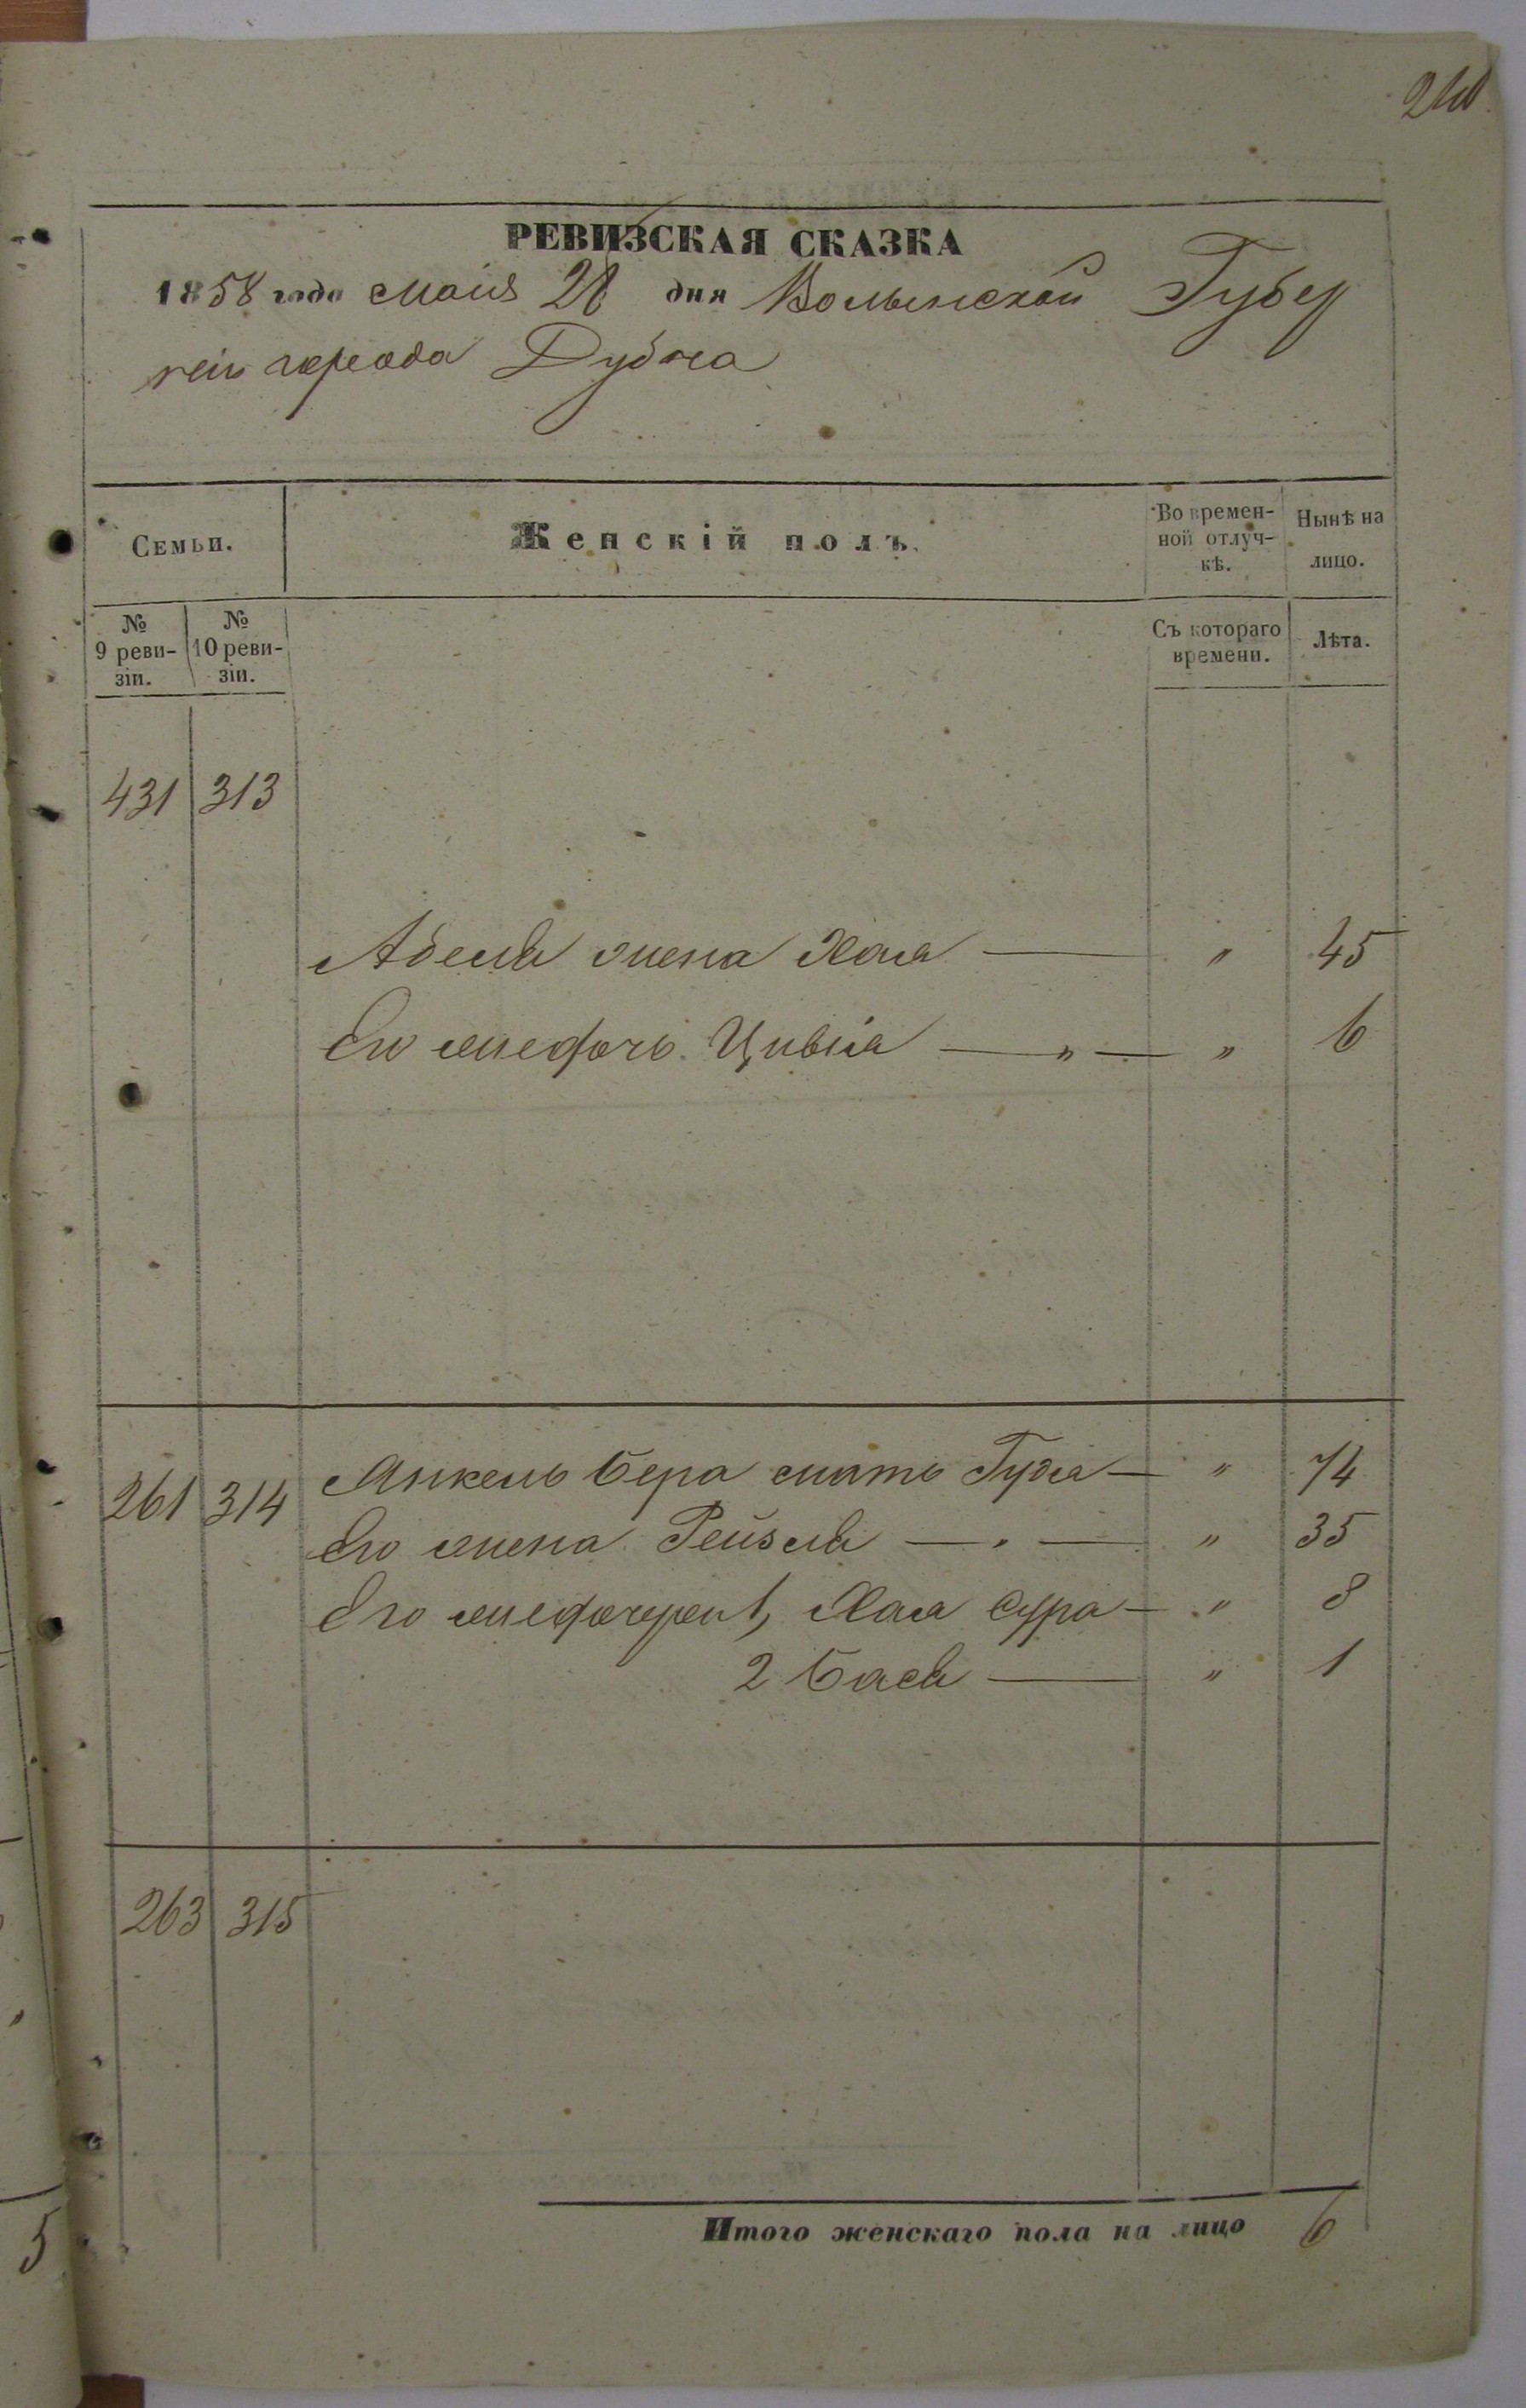 РЕВИЗСКАЯ СКАЗКА
1858 года маія 28 дня Волынской Губер
ніи города Дубна
Семьи.
Женскій полъ.
Во времен-
ной отлуч-
кѣ.
Нынѣ на
лицо.
№
9 реви-
зіи.
№
10 реви-
зіи.
Съ котораго
времени.
Лѣта.
431 313
Абеля жена Хая — " 45
Его жъ дочь Цивія — " — " 6
261 314 Янкель Бера мать Гудя — " 74
Его жена Рейзля — " — " 35
Его жъ дочери 1, Хая Сура — " 8
2 Бася — " 1
263 315
Итого женскаго пола на лицо 6
5